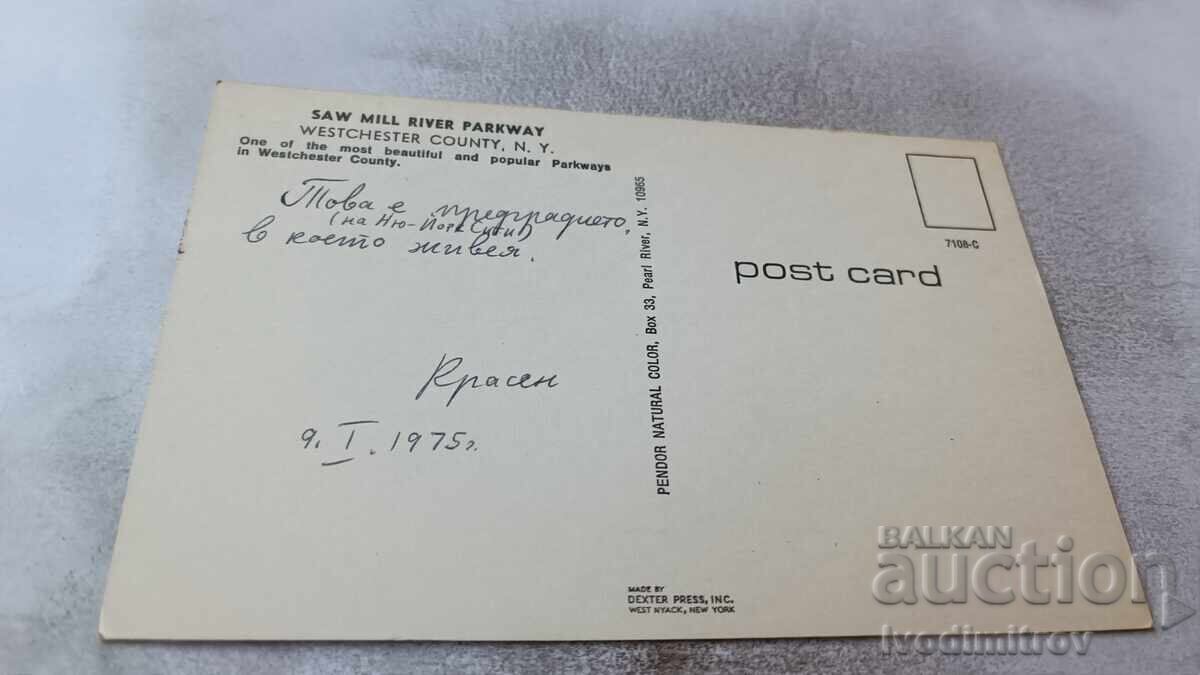 SAW MILL RIVER PARKWAY
WESTCHESTER COUNTY, N. Y.
One of the most beautiful and popular Parkways
in Westchester County.
Това е предградието,
(на Ню-Йорк Сити)
в което живея.
Красен
9. I. 1975г.
PENDOR NATURAL COLOR, Box 33, Pearl River, N.Y. 10965
7108-C
post card
MADE BY
DEXTER PRESS, INC.
WEST NYACK, NEW YORK
BALKAN
auction
Ivodimitrov